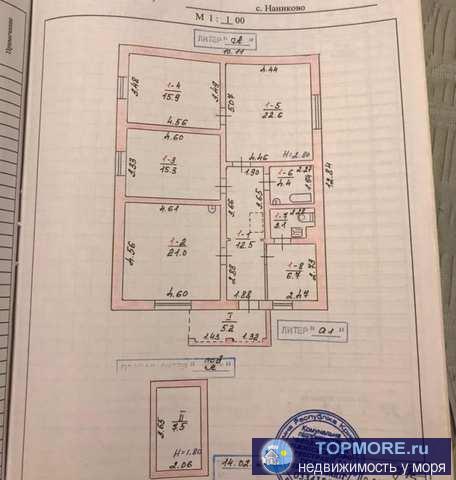 с. Наниково
Примечание
М 1 : 1 00
ЛИТЕР "А"
10.11
3.48
1-4
15.9
3.49
4.56
5.07
4.44
1-5
22.6
4.60
3.33
1-3
15.3
4.46
H=2.80
1.90
1-6
4.4
2.27
1.94
12.84
3.66
3.65
4.61
4.56
1-2
21.0
4.60
1-1
12.5
1-7
2.1
2.88
1-8
6.7
2.73
1.88
2.47
I
5.2
1.43
1.32
ЛИТЕР "а1"
под А
3.65
II
7.5
H=1.80
2.06
14.02
TOPMORE.ru
недвижимость у моря